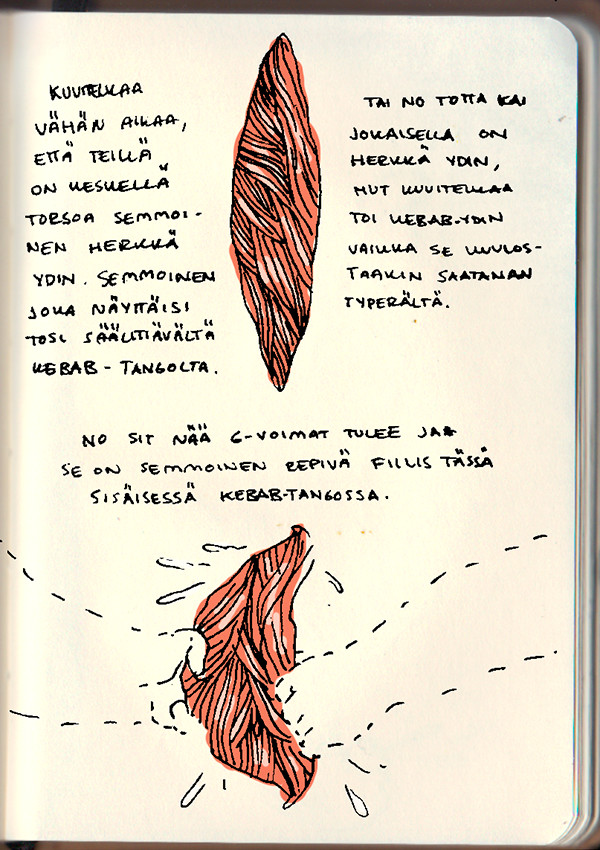 KUVITELKAA
VÄHÄN AIKAA,
ETTÄ TEILLÄ
ON KESKELLÄ
TORSOA SEMMOI-
NEN HERKKÄ
YDIN. SEMMOINEN
JOKA NÄYTTÄISI
TOSI SÄÄLITTÄVÄLTÄ
KEBAB-TANGOLTA.
TAI NO TOTTA KAI
JOKAISELLA ON
HERKKÄ YDIN,
MUT KUVITELKAA
TOI KEBAB-YDIN
VAIKKA SE KUULOS-
TAAKIN SAATANAN
TYPERÄLTÄ.
NO SIT NÄÄ G-VOIMAT TULEE JAA
SE ON SEMMOINEN REPIVÄ FIILIS TÄSSÄ
SISÄISESSÄ KEBAB-TANGOSSA.